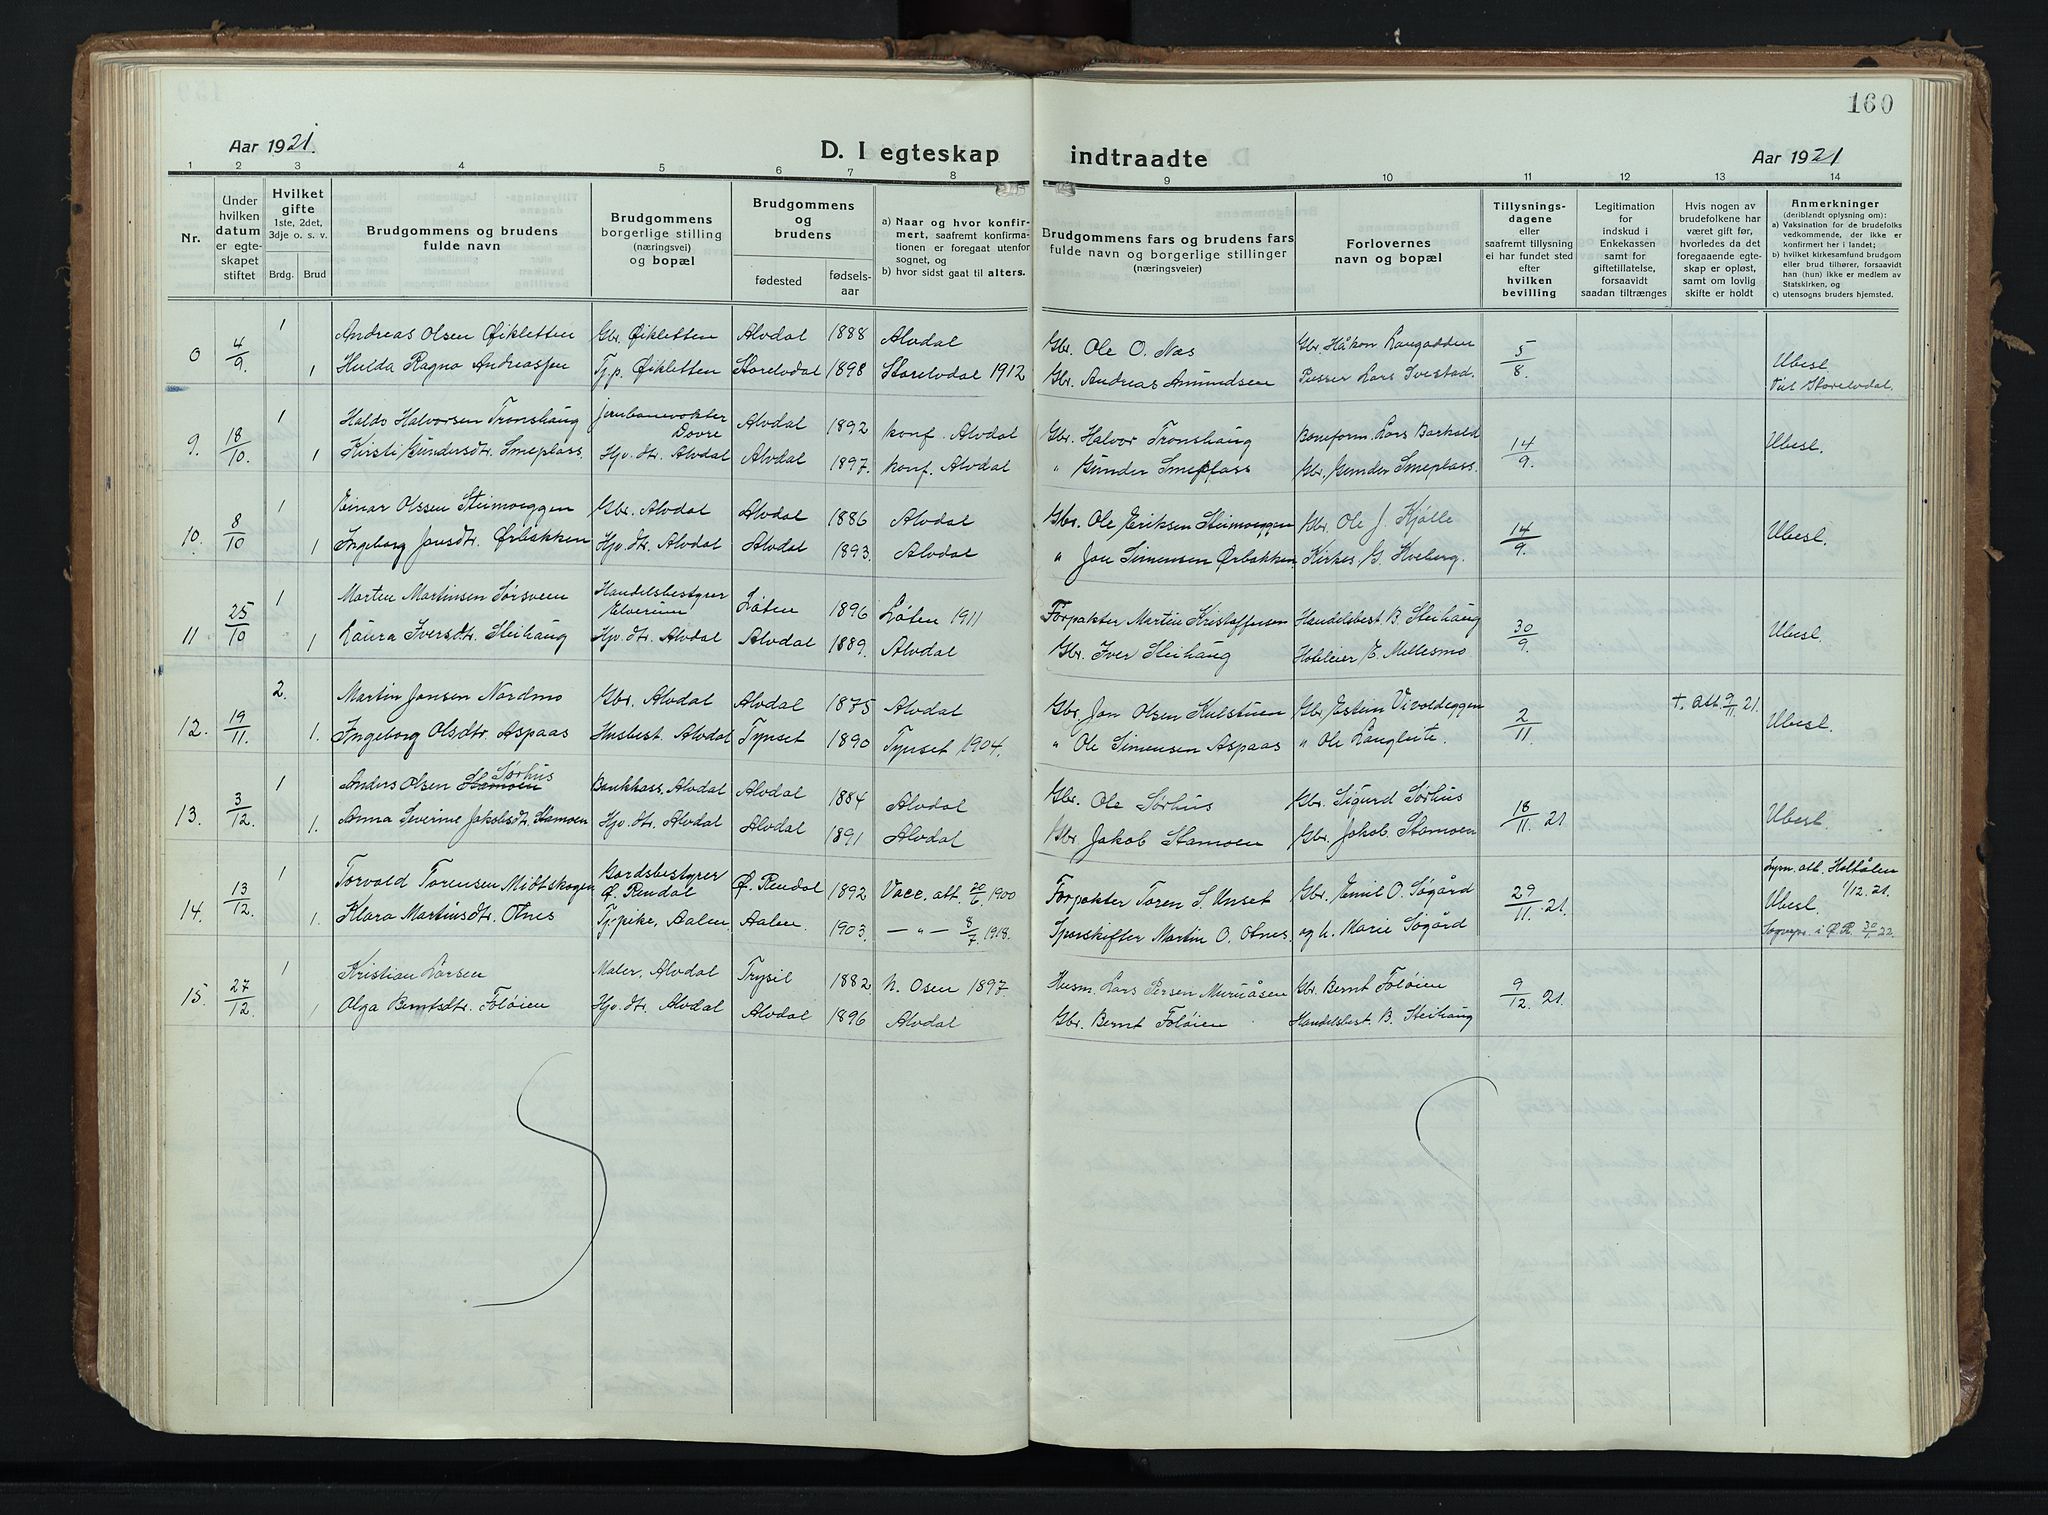 160
Aar 1921.
D. I egteskap indtraadte
Aar 1921
1 2 3 4 5 6 7 8 9 10 11 12 13 14
Nr.
Under hvilken datum er egteskapet stiftet
Hvilket gifte 1ste, 2det, 3dje o. s. v.
Brdg. Brud
Brudgommens og brudens fulde navn
Brudgommens borgerlige stilling (næringsvei) og bopæl
Brudgommens og brudens
fødested fødselsaar
a) Naar og hvor konfirmert, saafremt konfirmationen er foregaat utenfor sognet, og
b) hvor sidst gaat til alters.
Brudgommens fars og brudens fars fulde navn og borgerlige stillinger (næringsveier)
Forlovernes navn og bopæl
Tillysningsdagene eller saafremt tillysning ei har fundet sted efter hvilken bevilling
Legitimation for indskud i Enkekassen samt for giftetillatelse, forsaavidt saadan tiltrænges
Hvis nogen av brudefolkene har været gift før, hvorledes da det foregaaende egteskap er opløst, samt om lovlig skifte er holdt
Anmerkninger (deriblandt oplysning om):
a) Vaksination for de brudefolks vedkommende, der ikke er konfirmert her i landet;
b) hvilket kirkesamfund brudgom eller brud tilhører, forsaavidt han (hun) ikke er medlem av Statskirken, og
c) utensogns bruders hjemsted.
8 4/9 1 Andreas Olsen Øikletten Gbr. Øikletten Alvdal 1888 Alvdal Gbr. Ole O. Næs Gbr. Håkon Langodden 5/8. Ubesl.
1 Hulda Ragna Andreassen Tj.p. Øikletten Storelvdal 1898 Storelvdal 1912 Gbr. Andreas Amundsen Pusser Lars Svestad. Storelvdal.
9. 18/10 1 Haldo Halvorsen Tronshaug Jernbanevokter Dovre Alvdal 1892 Konf. Alvdal Gbr. Halvor Tronshaug Baneform. Lars Barkald 14/9. Ubesl.
1 Kirsti Gundersdtr. Smeplass. Hjv. dtr. Alvdal Alvdal 1897. Konf. Alvdal " Gunder Smeplass Gbr. Gunder Smeplass.
10. 8/10 1 Einar Olssen Steimoeggen Gbr. Alvdal Alvdal 1886 Alvdal Gbr. Ole Eriksen Steimoeggen Gbr. Ole J. Kjølle 14/9. Ubesl.
1 Ingeborg Jonsdtr. Ørbakken Hjv. dtr. Alvdal Alvdal 1893. Alvdal " Jon Simensen Ørbakken Kirkes. G. Kveberg.
11 25/10 1 Morten Martinsen Sørsveen Handelsbestyrer Elverum Løten 1896 Løten 1911 Forpakter Martin Kristoffersen Handelsbest. B. Steihaug 30/9. Ubesl.
1 Laura Iversdtr. Steihaug Hjv. dtr. Alvdal Alvdal 1889. Alvdal Gbr. Iver Steihaug Hoteleier E. Mellesmo
12. 19/11. 2. Martin Jonsen Nordmo Gbr. Alvdal Alvdal 1875 Alvdal Gbr. Jon Olsen Kulstuen Gbr. Estein Vivoldeggen 2/11. † att. 9/11 21. Ubesl.
1. Ingeborg Olsdtr. Aspaas Husbest. Alvdal Tynset 1890 Tynset 1904. " Ole Simensen Aspaas " Ole Langleite.
13. 3/12. 1 Anders Olsen Stamoen Sørhus Bankkass. Alvdal Alvdal 1884 Alvdal Gbr. Ole Sørhus Gbr. Sigurd Sørhus 18/11. 21. Ubesl.
1. Anna Severine Jakobsdtr. Stamoen Hjv. dtr. Alvdal Alvdal 1891 Alvdal Gbr. Jakob Stamoen Gbr. Jakob Stamoen
14. 13/12 1 Torvald Torensen Midtskogen Gardsbestyrer Ø. Rendal Ø. Rendal 1892 Vacc. att. 20/6 1900 Forpakter Toren S. Unset Gbr. Emil O. Søgård 29/11. 21. Lysn. att. Holtålen 1/12. 21. Ubesl.
1. Klara Martinsdtr. Otnes Tj.pike, Aalen Aalen. 1903. — " — 8/7 1918. Sporskifter Martin O. Otnes. og h. Marie Søgård i Ø. R. 30/1 22.
15. 27/12. 1 Kristian Larsen Maler, Alvdal Trysil 1882 N. Osen 1897. Husm. Lars Persen Muruåsen Gbr. Bernt Foløien 9/12. 21.
1 Olga Berntsdtr. Foløien Hjv. dtr. Alvdal Alvdal 1896 Alvdal Gbr. Bernt Foløien Handelsbest. B. Steihaug